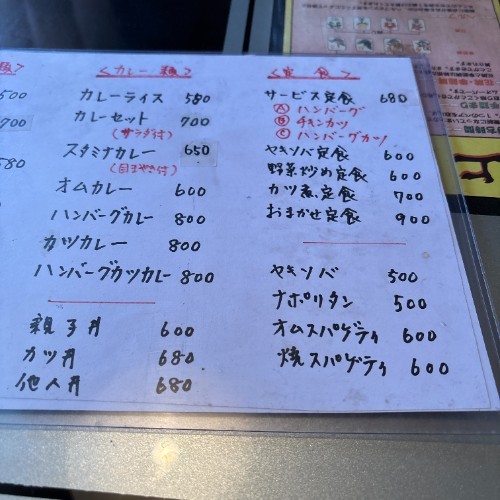 類>
500
700
580
<カレー類>
カレーライス 580
カレーセット 700
(サラダ付)
スタミナカレー 650
(目玉やき付)
オムカレー 600
ハンバーグカレー 800
カツカレー 800
ハンバーグカツカレー 800
親子丼 600
カツ丼 680
他人丼 680
<定食>
サービス定食 680
Ⓐ ハンバーグ
Ⓑ チキンカツ
Ⓒ ハンバーグカツ
ヤキソバ定食 600
野菜炒め定食 600
カツ煮定食 700
おまかせ定食 900
ヤキソバ 500
ナポリタン 500
オムスパゲティ 600
焼スパゲティ 600